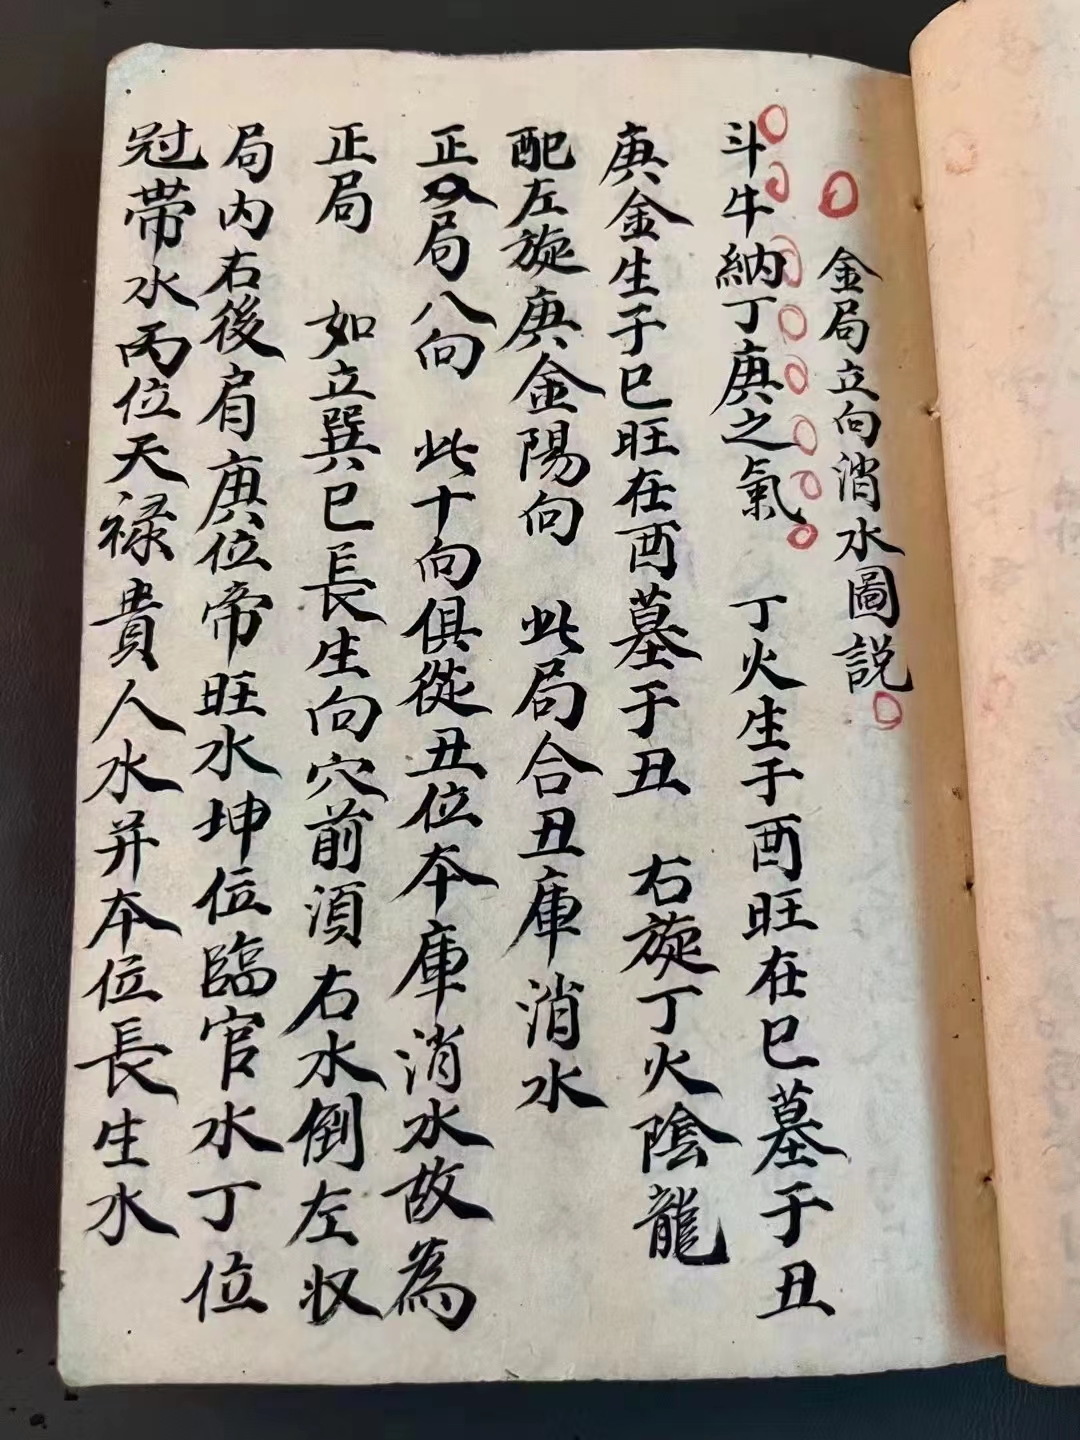 金局立向消水圖説
斗牛納丁庚之氣 丁火生于酉旺在巳墓于丑
庚金生于巳旺在酉墓于丑 右旋丁火陰龍
配左旋庚金陽向 此局合丑庫消水
正局八向 此十向俱從丑位本庫消水故為
正局 如立巽巳長生向穴前須右水倒左収
局内右後肩庚位帝旺水坤位臨官水丁位
冠帶水丙位天禄貴人水并本位長生水